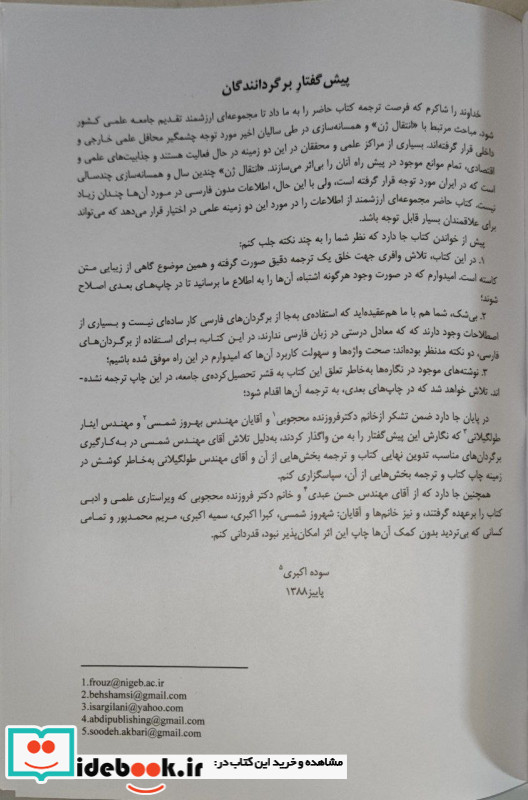 پیش گفتار برگردانندگان
خداوند را شاکرم که فرصت ترجمه کتاب حاضر را به ما داد تا مجموعه‌ای ارزشمند تقدیم جامعه علمی کشور
شود. مباحث مرتبط با «انتقال ژن» و همسانه‌سازی در طی سالیان اخیر مورد توجه چشمگیر محافل علمی خارجی و
داخلی قرار گرفته‌اند. بسیاری از مراکز علمی و محققان در این دو زمینه در حال فعالیت هستند و جذابیت‌های علمی و
اقتصادی، تمام موانع موجود در پیش راه آنان را بی‌اثر می‌سازند. «انتقال ژن» چندین سال و همسانه‌سازی چندسالی
است که در ایران مورد توجه قرار گرفته است، ولی با این حال، اطلاعات مدون فارسی در مورد آن‌ها چندان زیاد
نیست. کتاب حاضر مجموعه‌ای ارزشمند از اطلاعات را در مورد این دو زمینه علمی در اختیار قرار می‌دهد که می‌تواند
برای علاقمندان بسیار قابل توجه باشد.
پیش از خواندن کتاب جا دارد که نظر شما را به چند نکته جلب کنم:
۱. در این کتاب، تلاش وافری جهت خلق یک ترجمه دقیق صورت گرفته و همین موضوع گاهی از زیبایی متن
کاسته است. امیدوارم که در صورت وجود هرگونه اشتباه، آن‌ها را به اطلاع ما برسانید تا در چاپ‌های بعدی اصلاح
شوند؛
۲. بی‌شک، شما هم با ما هم‌عقیده‌اید که استفاده‌ی به‌جا از برگردان‌های فارسی کار ساده‌ای نیست و بسیاری از
اصطلاحات وجود دارند که که معادل درستی در زبان فارسی ندارند. در این کتاب، برای استفاده از برگردان‌های
فارسی، دو نکته مدنظر بوده‌اند: صحت واژه‌ها و سهولت کاربرد آن‌ها که امیدوارم در این راه موفق شده باشیم؛
۳. نوشته‌های موجود در نگاره‌ها به‌خاطر تعلق این کتاب به قشر تحصیل‌کرده‌ی جامعه، در این چاپ ترجمه نشده-
اند. تلاش خواهد شد که در چاپ‌های بعدی، به ترجمه آن‌ها اقدام شود؛
در پایان جا دارد ضمن تشکر ازخانم دکترفروزنده محجوبی۱ و آقایان مهندس بهروز شمسی۲ و مهندس ایثار
طولگیلانی۳ که نگارش این پیش‌گفتار را به من واگذار کردند، به‌دلیل تلاش آقای مهندس شمسی در به‌کارگیری
برگردان‌های مناسب، تدوین نهایی کتاب و ترجمه بخش‌هایی از آن و آقای مهندس طولگیلانی به‌خاطر کوشش در
زمینه چاپ کتاب و ترجمه بخش‌هایی از آن، سپاسگزاری کنم.
همچنین جا دارد که از آقای مهندس حسن عبدی۴ و خانم دکتر فروزنده محجوبی که ویراستاری علمی و ادبی
کتاب را برعهده گرفتند، و نیز خانم‌ها و آقایان: شهروز شمسی، کبرا اکبری، سمیه اکبری، مریم محمدپور و تمامی
کسانی که بی‌تردید بدون کمک آن‌ها چاپ این اثر امکان‌پذیر نبود، قدردانی کنم.
سوده اکبری۵
پاییز۱۳۸۸
1.frouz@nigeb.ac.ir
2.behshamsi@gmail.com
3.isargilani@yahoo.com
4.abdipublishing@gmail.com
5.soodeh.akbari@gmail.com
مشاهده و خرید این کتاب در:
idebook.ir